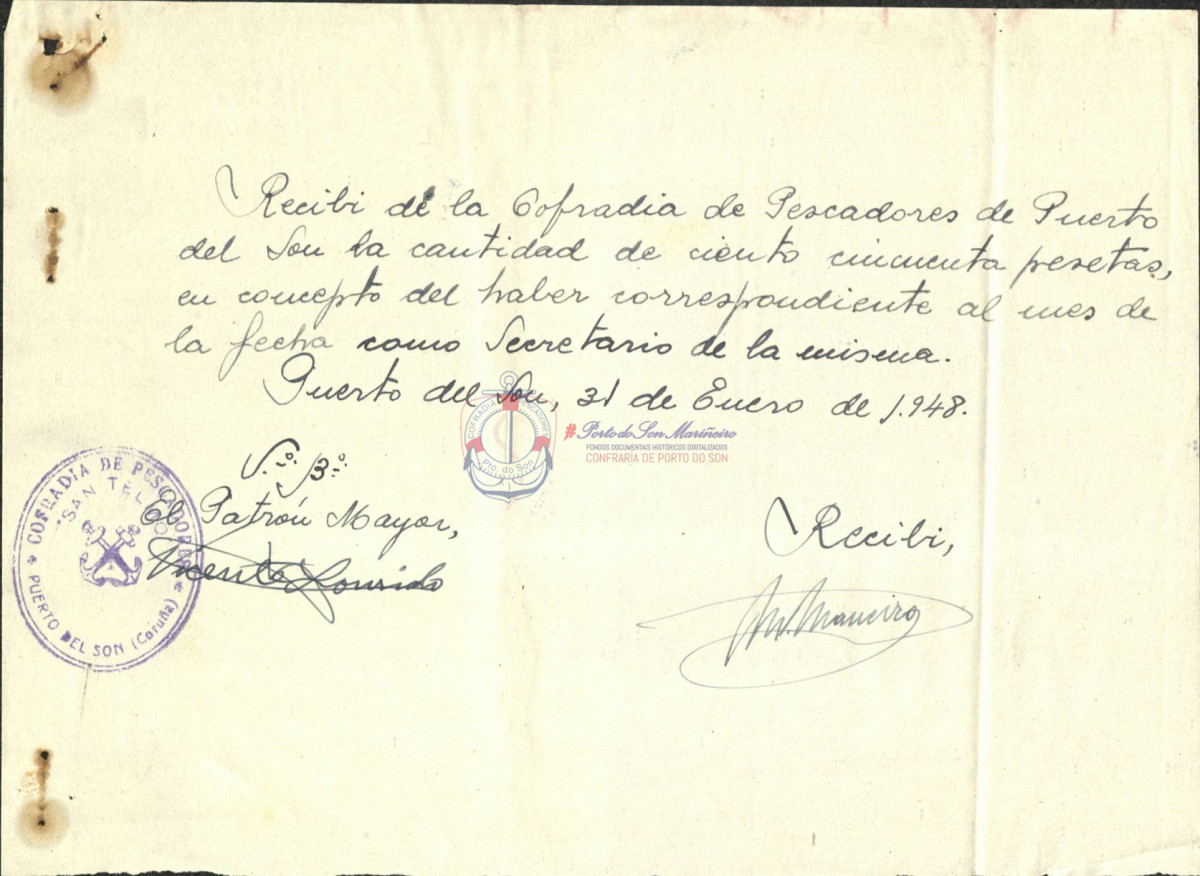 Recibi de la Cofradia de Pescadores de Puerto
del Son la cantidad de ciento cincuenta pesetas,
en concepto del haber correspondiente al mes de
la fecha como Secretario de la misma.
Puerto del Son, 31 de Enero de 1.948.
V.º B.º
El Patrón Mayor,
Vicente Lourido
Recibi,
M. Maneiro
COFRADIA DE PESCADORES
"SAN TELMO"
* PUERTO DEL SON (Coruña) *
COFRADIA PESCADORES
Pto. do Son
#Porto do Son Mariñeiro
FONDOS DOCUMENTAIS HISTÓRICOS DIGITALIZADOS
CONFRARÍA DE PORTO DO SON